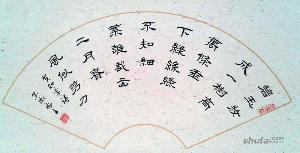 碧玉妝
成一樹高
萬條垂
下綠絲絛
不知細
葉誰裁出
二月春
風似剪刀
shufa.com